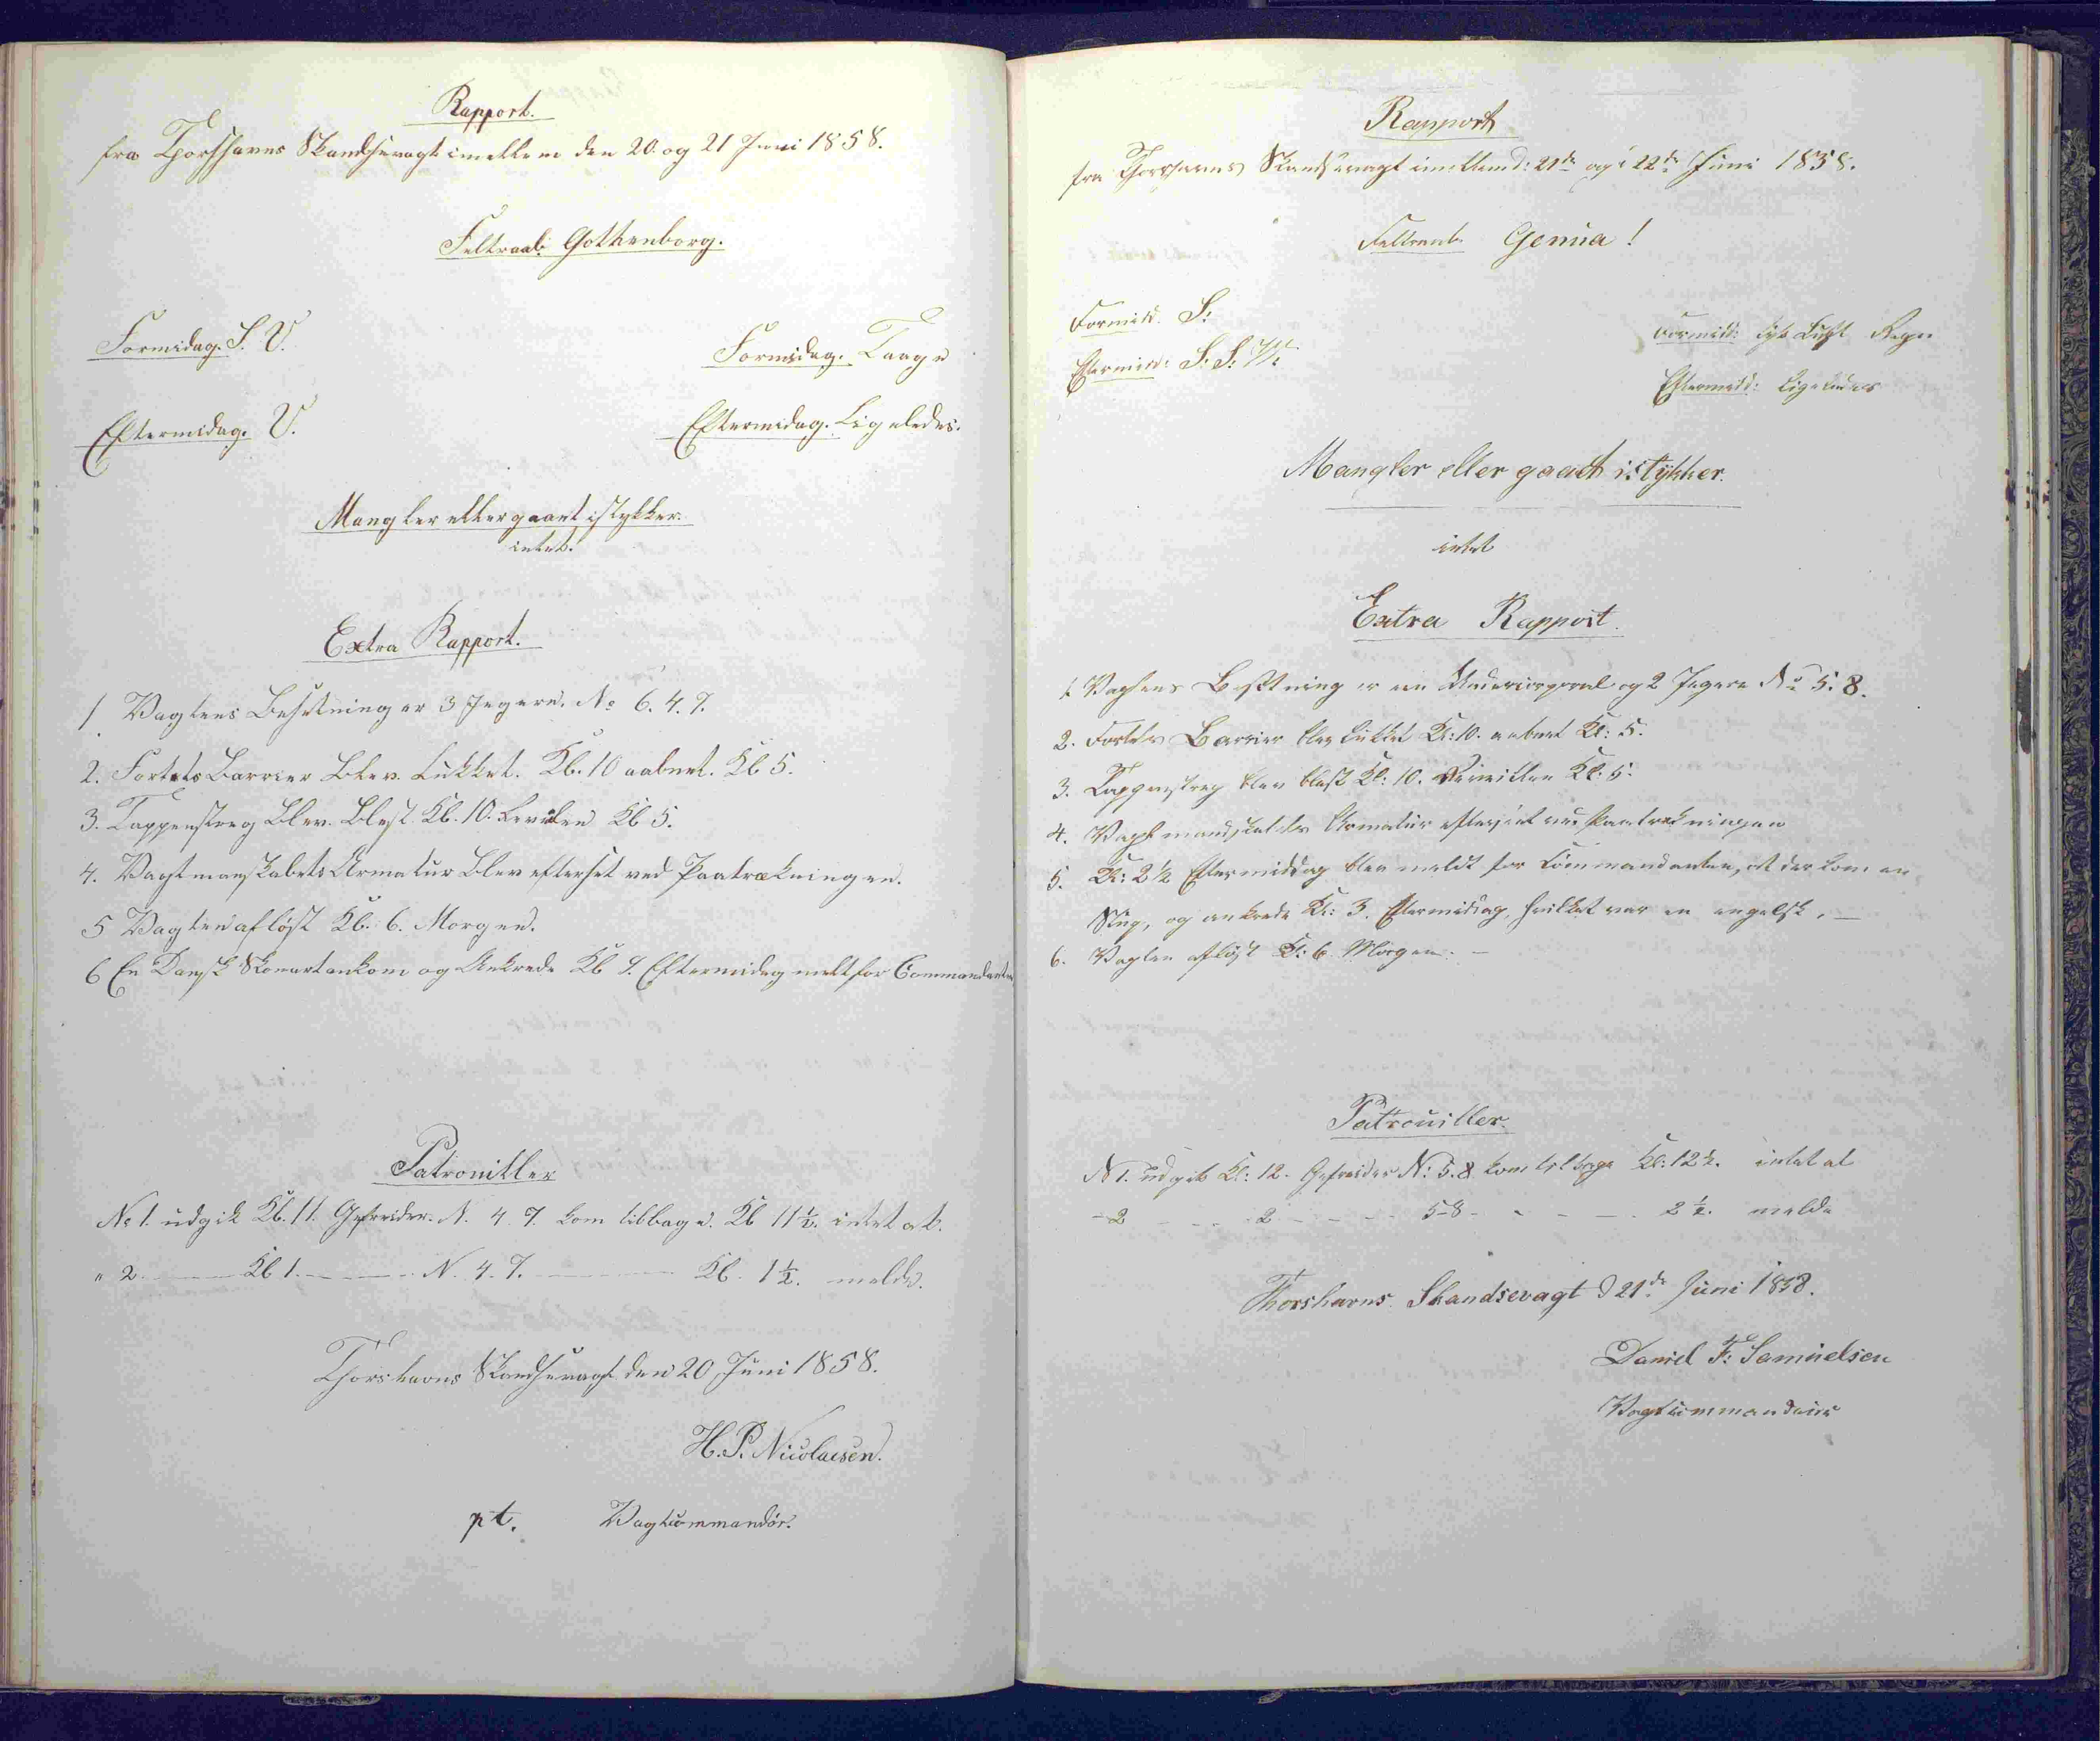 Rapport.
fra Thorshavns Skandsevagt imellem den 20. og 21 Juni 1858.
Feltraab: Gothenborg.
Formidag. S. V.
Formidag. Taage
Eftermidag. V.
Eftermidag. Ligeledes.
Mangler eller gaaet istykker.
intet.
Extra Rapport.
1 Vagtens Besetning er 3 Jegere. No 6. 4. 7.
2. Fortets Barrier Blev. Lukket. Kl. 10 aabnet. Kl 5.
3. Tappenstreg Blev. Blest Kl. 10. Revelen Kl 5.
4. Vagtmanskabets Armatur Blev efterset ved Paatrækningen.
5 Vagten afløst Kl. 6. Morgen.
6 En Dansk Skonnert ankom og Ankrede Kl 7. Eftermidag melt for Commandanten
Patrouiller
No 1. udgik Kl. 11. Gefreider. N. 4. 7. kom tilbage. Kl 11½. intet at.
" 2. Kl 1. N. 4. 7. Kl. 1½. melde.
Thorshavns Skandsevagt den 20 Juni 1858.
H. P. Nicolaisen.
pt. Vagtcommandør.
Rapport
fra Thorshavns Skandsevagt imellem d: 21de og 22de Juni 1858.
Feltraab. Genua!
Formid. S:
Formid: tyk Luft Regn
Eftermid: S. S: W:
Eftermidd: Ligeledes
Mangler eller gaaet istykker.
intet
Extra Rapport.
1. Vagtens Besætning er en Undercorporal og 2 Jegere No 5. 8.
2. Fortets Barrier blev lukket Kl: 10. aabnet Kl: 5.
3. Tappenstreg blev blæst Kl: 10. Reveillen Kl: 5.
4. Vagtmandskabets Armatur efterseet ved Paatrækningen
5. Kl: 2½ Eftermiddag blev meldt for Commandanten, at der kom en
Slup, og ankrede Kl: 3. Eftermiddag, hvilket var en engelsk. —
6. Vagten afløst Kl: 6 Morgen. —
Patrouiller.
N 1. udgik Kl: 12. Gefreider N: 5. 8 kom tilbage Kl: 12½. intet at
- 2 - - - 2 - - - - 5-8 - - - - 2½. melde
Thorshavns Skandsevagt d 21de Juni 1858.
Daniel F: Samuelsen
Vagtcommandeur